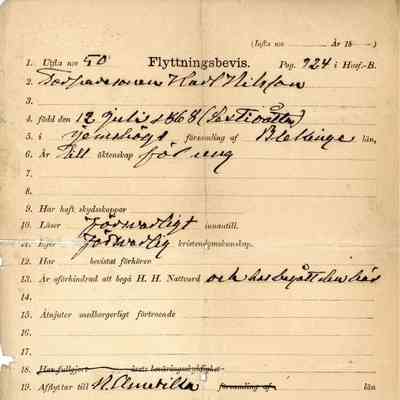 (Infts n:o ____ År 18__)
1. Utfts n:o 50 Flyttningsbevis. Pag. 224 i Husf.-B.
2. Karl Nilsson
3.
4. född den 12 Juli 1868 (Sextioåtta)
5. i Jemshögs församling af Blekinge län,
6. Är till äktenskap för ung
7.
8.
9. Har haft skyddskoppor
10. Läser försvarligt innantill.
11. Eger försvarlig kristendomskunskap.
12. Har bevistat förhören
13. Är oförhindrad att begå H. H. Nattvard och har begått den här
14.
15. Åtnjuter medborgerligt förtroende
16.
17.
18. Har fullgjort årets beväringsskyldighet
19. Afflyttar till N. Amerika församling af län